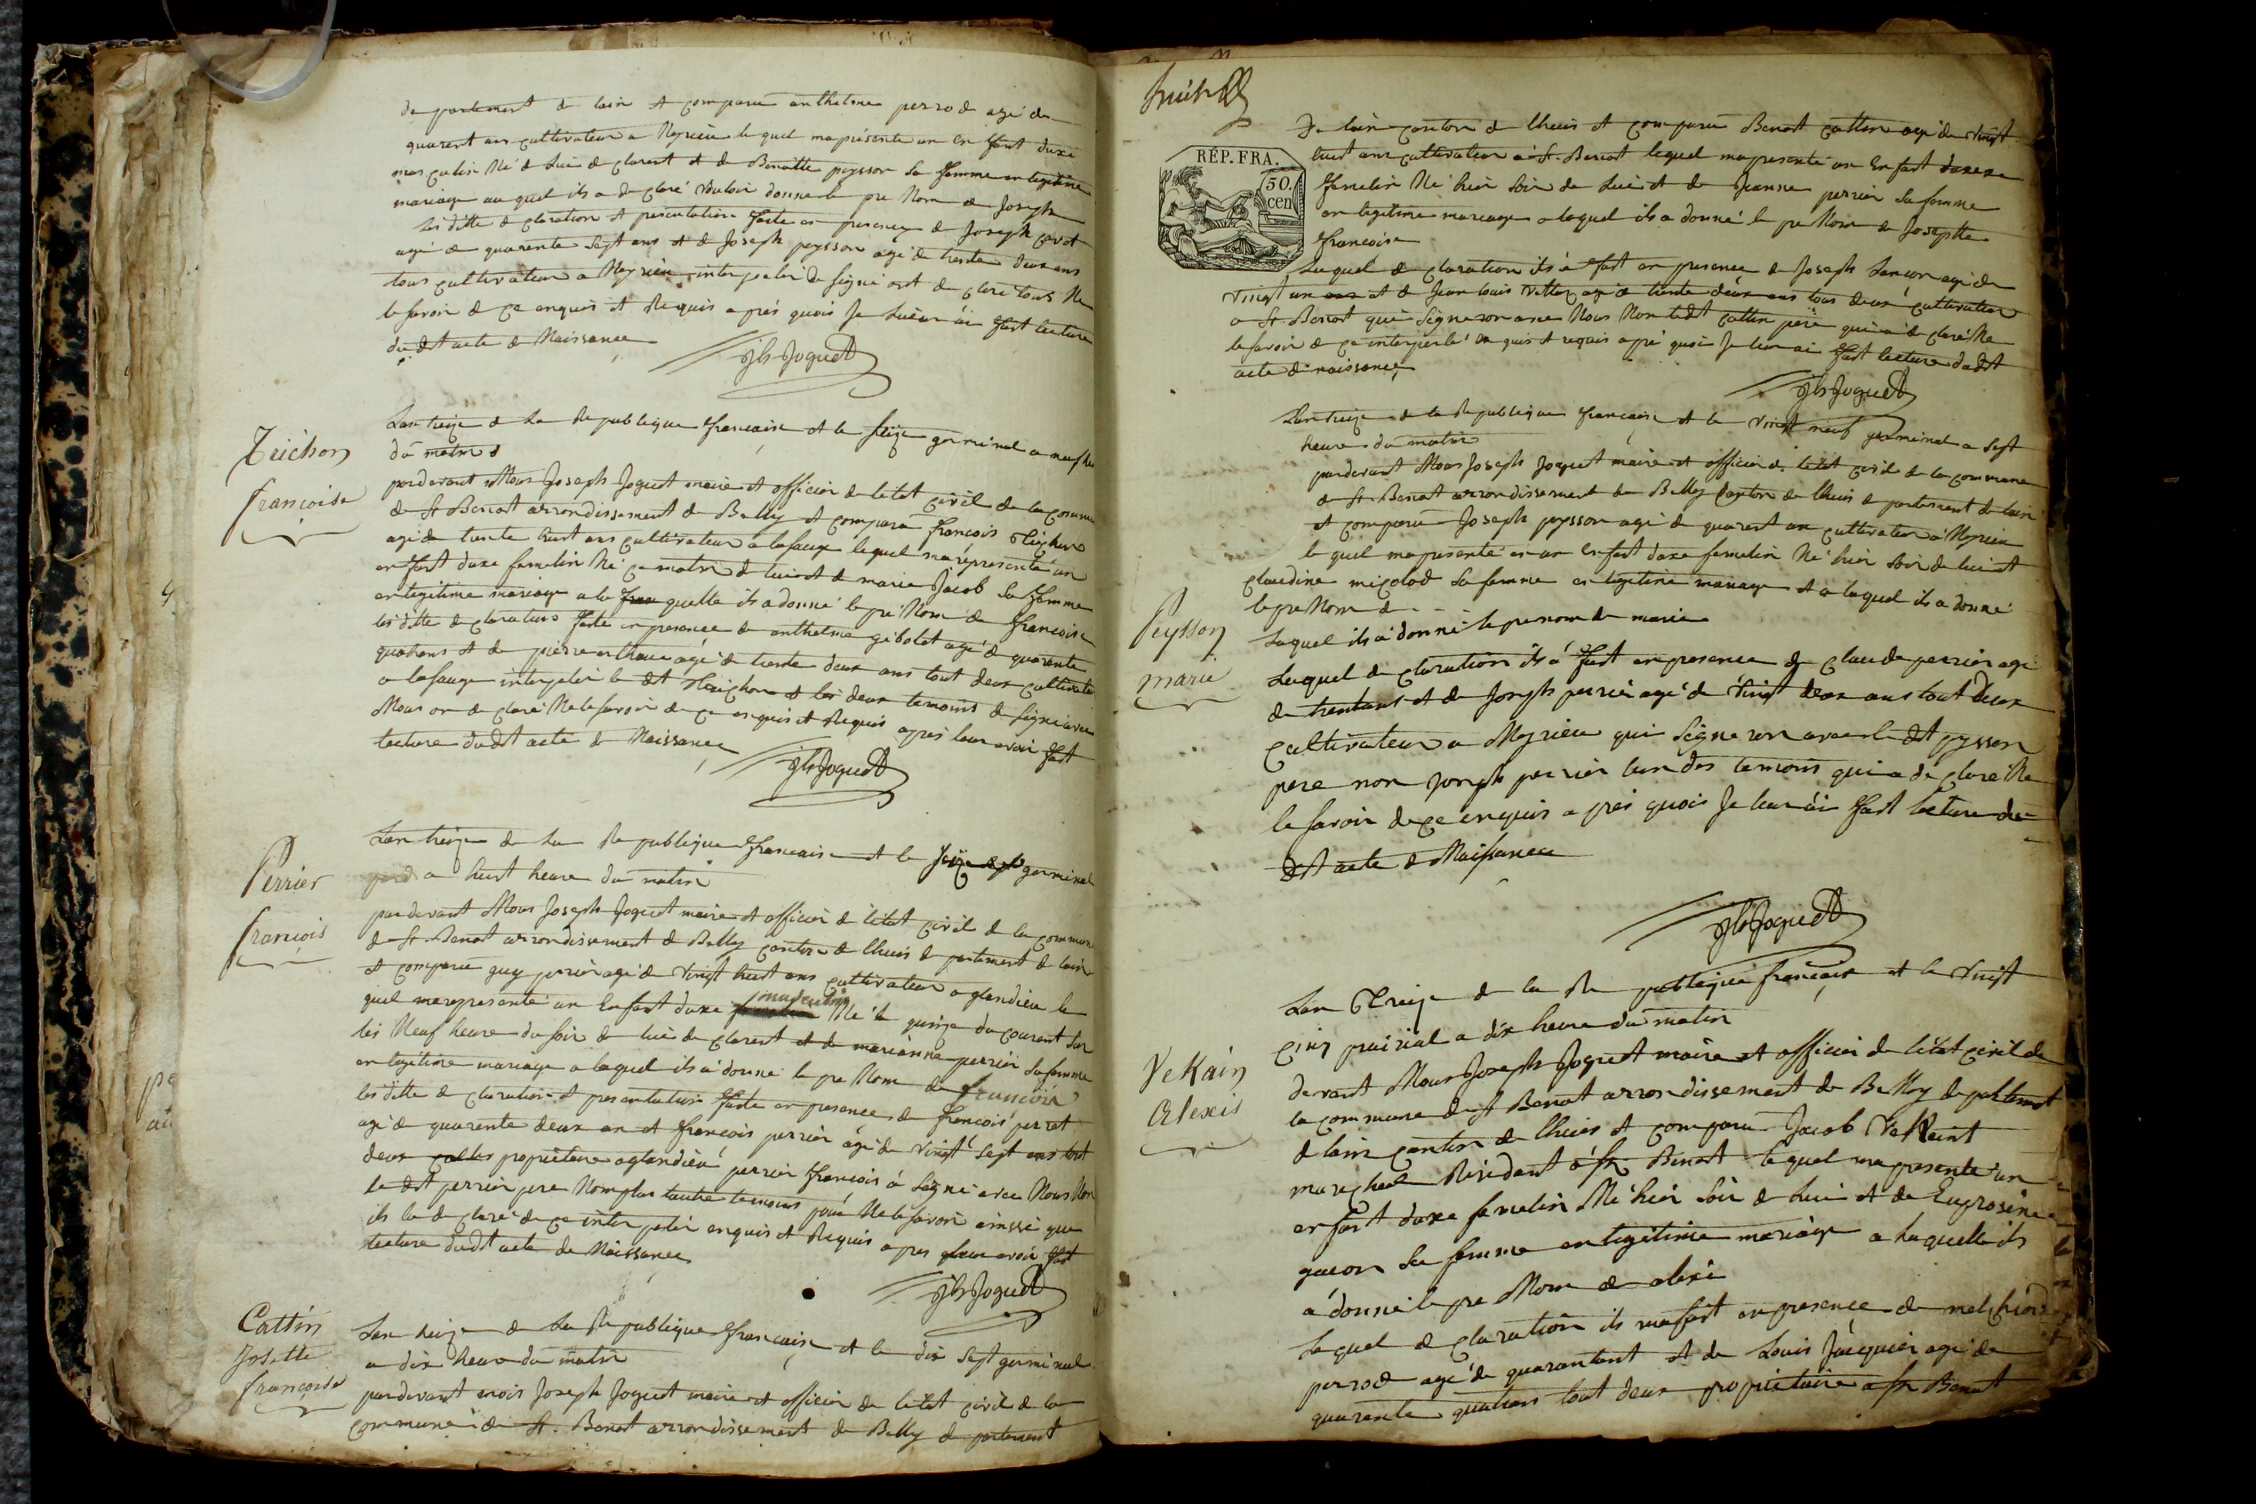 de partement de lain et comparu anthelme perrod agé de
quarent ans cultivateur a Meyrieu le quel ma présente un En fant duxe
mas culin Né de Lui de clarent et de Benoitte peysson sa femme en legitime
mariage au quel ils a de claré vouloir donner le pre Nom de Joseph
les ditte de claration et presentation faite en presence de Joseph
agé de quarente sept ans et de Joseph peysson agé de trente deux ans
tous cultivateur a Meyrieu interpeler de signé ont de claré tous Ne
le savoir de ce enquis et Requis aprés quois Je Leur ai fait lecture
du dit acte de Naissance
Jh Joguet
Trichon
françoise
Lan treize de La Re publique francaise et le seize germinal a neuf
du matin
pardevant Nous Joseph Joguet maire et officier de létat civil de la commune
de St Benoit arrondissement de Belley et comparu françois Trichon
agé de trente huit ans cultivateur a lafauge lequel ma représenté un
enfant duxe femelin Né ce matin de lui et de marie Jacob sa femme
en legitime mariage a la quelle ils a donné le pré Nom de francoise
les ditte de claration faite en presence de anthelme gibolet agé de quarente
quatrans et de pierre agé de trente deux ans tout deux cultivateur
a lafauge interpeler le dit Trichon et les deux temoins de signé avec
Nous on de claré Ne le savoir de ce enquis et Requis apres leur avoir fait
lecture du dit acte de Naissance
Jh Joguet
Perrier
francois
Lan treize de La Re publique francaise et le germinal
a huit heure du matin
pardevant Nous Joseph Joguet maire et officier de létat civil de la commune
de St Benoit arrondissement de Belley canton de lhuis de partement de lain
et comparu guy perrier agé de vingt huit ans cultivateur a glandieu le
quel ma représenté un Enfant duxe masculin Né le quinze du courant sur
les Neuf heure du soir de lui de clarent et de marianne perrier sa femme
en legitime mariage a laquel ils a donné le pre Nom de francois
les ditte de claration et presentation faite en presence de francois perret
agé de quarente deux an et francois perrier agé de vingt sept ans tout
deux propriétaire a glandieu perrier francois a signé avec Nous Non
le dit perrier pere Nomplus lautre temoins pour Ne le savoir ainssi que
ils la de claré de ce interpeler enquis et Requis apres leur avoir fait
lecture du dit acte de Naissance
Jh Joguet
Cattin
Josette
françoise
Lan treize de La Re publique francaise et le dix sept germinal
a dix heure du matin
pardevant nois Joseph Joguet maire et officier de létat civil de la
commune de St. Benoit arrondissement de Belley de partement
huit
RÉP. FRA.
50.
cen
De lain canton de lhuis et comparu Benoit cattin agé de vingt
huit ans cultivateur a St. Benoit lequel ma presente un Enfant duxexe
femelin Né hier soir de Lui et de Jeanne perrier sa femme
en legitime mariage a laquel ils a donné le pre Nom de Josephte
francoise
Laquel de claration ils a fait en presence de Joseph Lancon agé de
vingt un ans et de Jean Louis vettaz agé de trente deux ans tous deux cultivateur
a St. Benoit qui Signeron avec Nous Non ledit cattin pere qui a de claré Ne
le savoir de ce interpellé en quis et requis apré quoi Je leur ai fait lecture dudit
acte de naissance
Jh Joguet
Peysson
marie
Lan treize de la Re publique francaise et le vingt neuf germinal a sept
heure du matin
pardevant Nous Joseph Joguet maire et officier de létat civil de la commune
de St. Benoit arrondissement de Belley Canton de lhuis de partement de lain
et comparu Joseph peysson agé de quarent an cultivateur a Meyrieu
le quel ma présenté un Enfant duxe femelin Né hier soir de lui et
claudine micolod sa femme en legitime mariage et a laquel ils a donné
le pre Nom d
Laquel ils a donné le pre nom de marie
Laquel de claration ils a fait en presence de claude perrier agé
de trentans et de Joseph perrier agé de vingt deux ans tout deux
cultivateur a Meyrieu qui Signe ron avec le dit pysson
pere non Joseph perrier lun des temoins qui a de claré Ne
le savoir de ce enquis a pres quois Je leur ai fait lecture du
dit acte de Naissance
Jh Joguet
Vekain
Alexis
Lan Treize de la Re publique française et le vingt
cinq prairial a dix heure du matin
devant Nous Joseph Joguet maire et officier de létat civil de
la commune de St Benoit arrondissement de Belley de partement
de lain canton de lhuis et comparu Jacob Vekeint
marechal Résidant a St. Benoit lequel ma presente un
enfant duxe femelin Né hier soir de lui et de Eugrosine
gueon sa femme en legitime mariage a laquelle ils
a donné le pre Nom de alexi
Laquel de claration ils ma fait en presence de melchior
perrod agé de quarantant et de Louis Jacquier agé de
quarente quatrans tout deux proprietaire a St Benoit